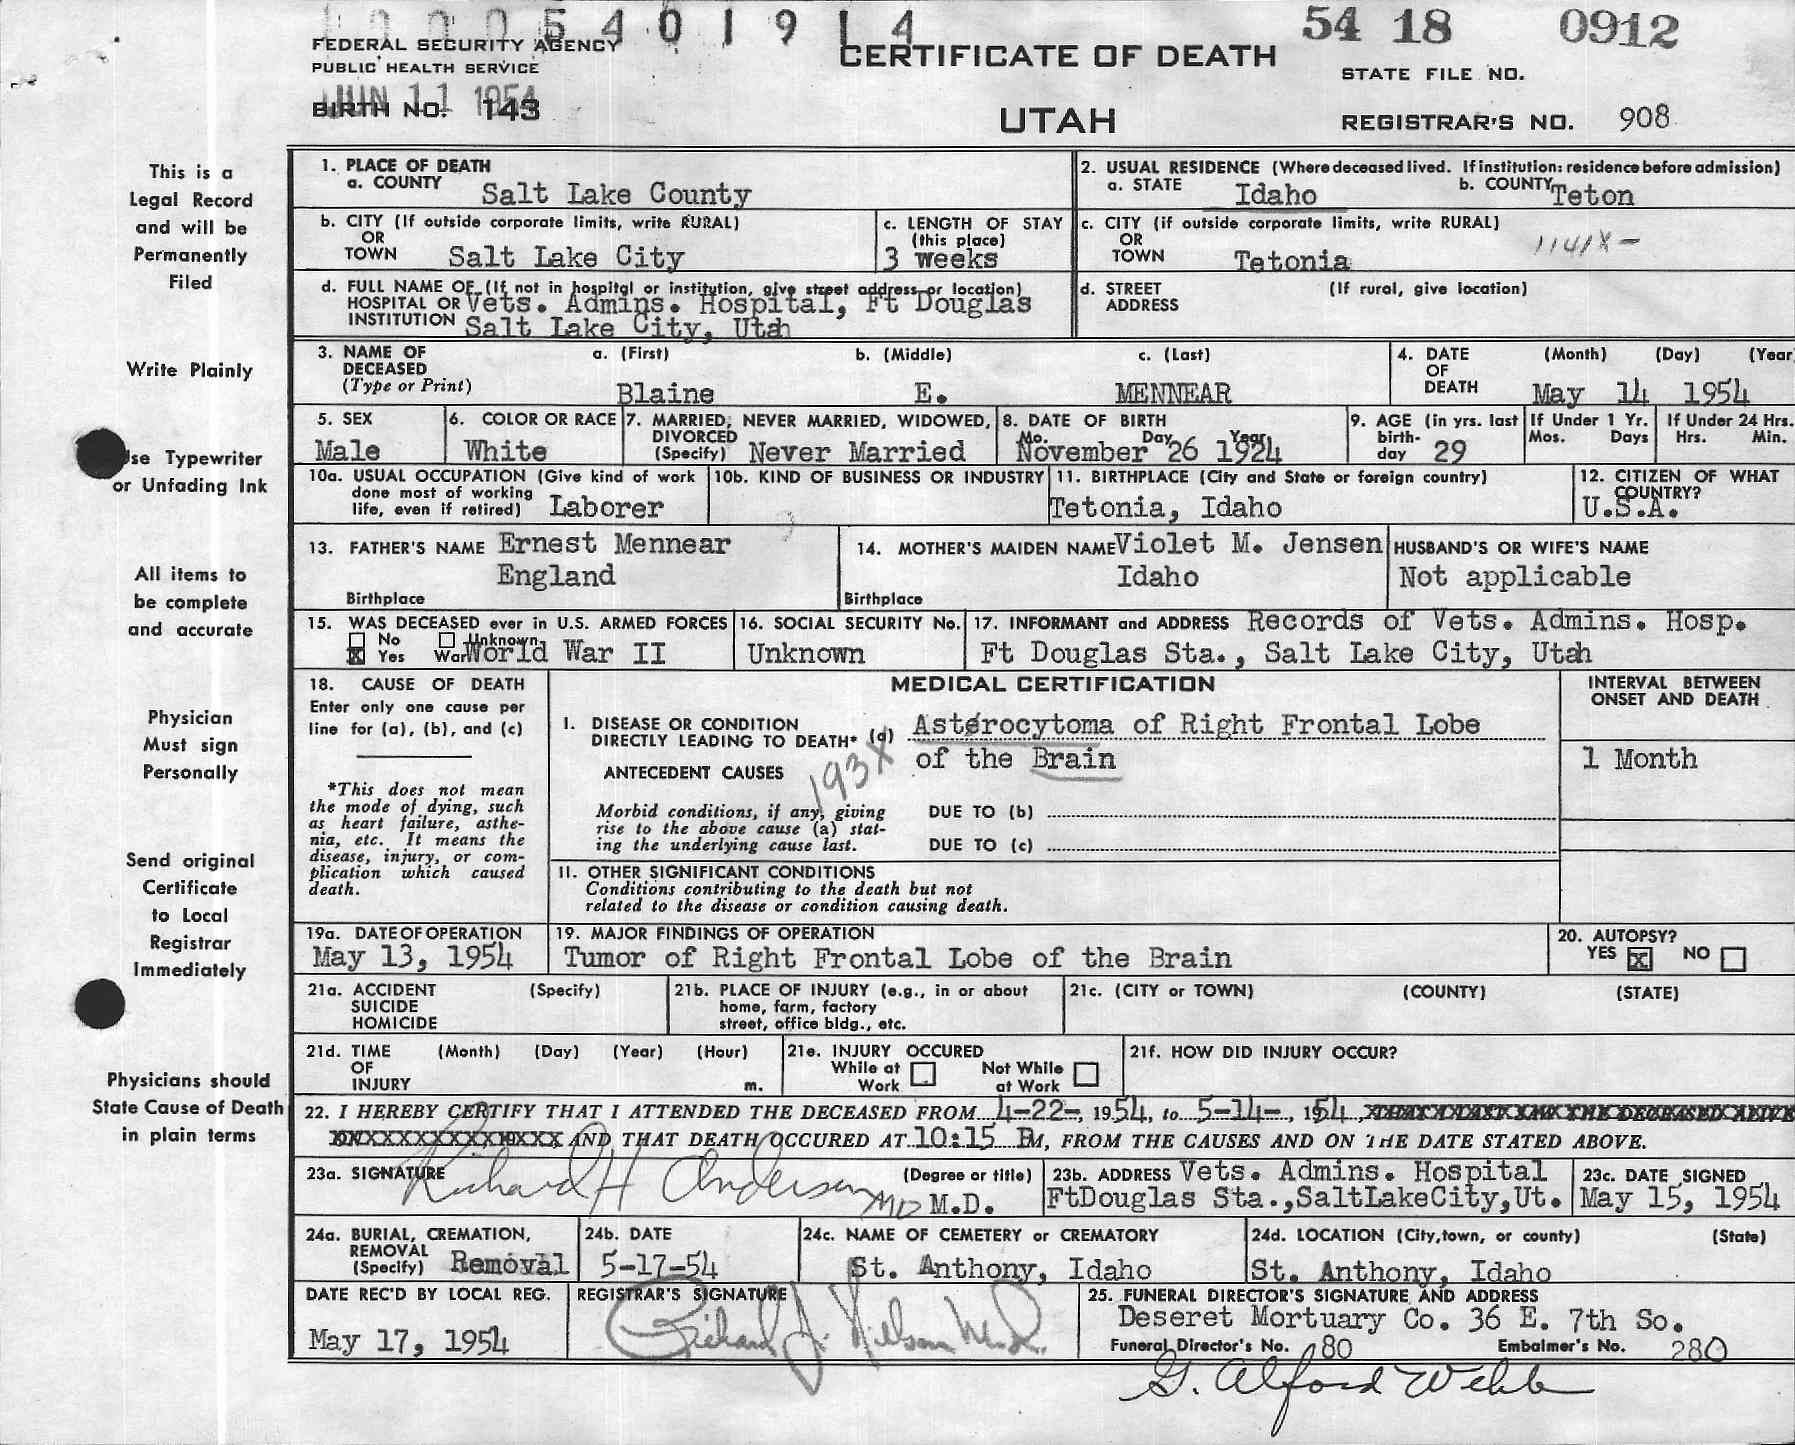 1000540 1914
54 18 0912
FEDERAL SECURITY AGENCY
PUBLIC HEALTH SERVICE
CERTIFICATE OF DEATH
STATE FILE NO.
JUN 11 1954
BIRTH NO. 143
UTAH
REGISTRAR'S NO. 908
This is a
Legal Record
and will be
Permanently
Filed
Write Plainly
Use Typewriter
or Unfading Ink
All items to
be complete
and accurate
Physician
Must sign
Personally
Send original
Certificate
to Local
Registrar
Immediately
Physicians should
State Cause of Death
in plain terms
1. PLACE OF DEATH
a. COUNTY Salt Lake County
2. USUAL RESIDENCE (Where deceased lived. If institution: residence before admission)
a. STATE Idaho b. COUNTY Teton
b. CITY (If outside corporate limits, write RURAL)
OR
TOWN Salt Lake City
c. LENGTH OF STAY
(this place)
3 weeks
c. CITY (if outside corporate limits, write RURAL)
OR
TOWN Tetonia
1141X-
d. FULL NAME OF (If not in hospital or institution, give street address or location)
HOSPITAL OR Vets. Admins. Hospital, Ft Douglas
INSTITUTION Salt Lake City, Utah
d. STREET (If rural, give location)
ADDRESS
3. NAME OF DECEASED (Type or Print)
a. (First) b. (Middle) c. (Last)
Blaine E. MENNEAR
4. DATE OF DEATH (Month) (Day) (Year
May 14 1954
5. SEX
Male
6. COLOR OR RACE
White
7. MARRIED, NEVER MARRIED, WIDOWED,
DIVORCED
(Specify) Never Married
8. DATE OF BIRTH
Mo. Day Year
November 26 1924
9. AGE (in yrs. last
birth-
day 29
If Under 1 Yr.
Mos. Days
If Under 24 Hrs.
Hrs. Min.
10a. USUAL OCCUPATION (Give kind of work
done most of working
life, even if retired) Laborer
10b. KIND OF BUSINESS OR INDUSTRY
11. BIRTHPLACE (City and State or foreign country)
Tetonia, Idaho
12. CITIZEN OF WHAT
COUNTRY?
U.S.A.
13. FATHER'S NAME Ernest Mennear
England
Birthplace
14. MOTHER'S MAIDEN NAME Violet M. Jensen
Idaho
Birthplace
HUSBAND'S OR WIFE'S NAME
Not applicable
15. WAS DECEASED ever in U.S. ARMED FORCES
No Unknown
X Yes War World War II
16. SOCIAL SECURITY No.
Unknown
17. INFORMANT and ADDRESS Records of Vets. Admins. Hosp.
Ft Douglas Sta., Salt Lake City, Utah
18. CAUSE OF DEATH
Enter only one cause per
line for (a), (b), and (c)
*This does not mean
the mode of dying, such
as heart failure, asthe-
nia, etc. It means the
disease, injury, or com-
plication which caused
death.
MEDICAL CERTIFICATION
INTERVAL BETWEEN
ONSET AND DEATH
I. DISEASE OR CONDITION
DIRECTLY LEADING TO DEATH* (a) Asterocytoma of Right Frontal Lobe
of the Brain
1 Month
193X
ANTECEDENT CAUSES
Morbid conditions, if any, giving
rise to the above cause (a) stat-
ing the underlying cause last.
DUE TO (b)
DUE TO (c)
11. OTHER SIGNIFICANT CONDITIONS
Conditions contributing to the death but not
related to the disease or condition causing death.
19a. DATE OF OPERATION
May 13, 1954
19. MAJOR FINDINGS OF OPERATION
Tumor of Right Frontal Lobe of the Brain
20. AUTOPSY?
YES X NO
21a. ACCIDENT (Specify)
SUICIDE
HOMICIDE
21b. PLACE OF INJURY (e.g., in or about
home, farm, factory
street, office bldg., etc.
21c. (CITY or TOWN) (COUNTY) (STATE)
21d. TIME (Month) (Day) (Year) (Hour)
OF
INJURY m.
21e. INJURY OCCURED
While at Work Not While at Work
21f. HOW DID INJURY OCCUR?
22. I HEREBY CERTIFY THAT I ATTENDED THE DECEASED FROM 4-22-, 1954, to 5-14-, 1954, THAT I LAST SAW THE DECEASED ALIVE
ON XXXXXXXXXXXXXX AND THAT DEATH OCCURED AT 10:15 PM, FROM THE CAUSES AND ON THE DATE STATED ABOVE.
23a. SIGNATURE (Degree or title)
Richard H Anderson MD M.D.
23b. ADDRESS Vets. Admins. Hospital
FtDouglas Sta.,SaltLakeCity,Ut.
23c. DATE SIGNED
May 15, 1954
24a. BURIAL, CREMATION,
REMOVAL
(Specify) Removal
24b. DATE
5-17-54
24c. NAME OF CEMETERY or CREMATORY
St. Anthony, Idaho
24d. LOCATION (City, town, or county) (State)
St. Anthony, Idaho
DATE REC'D BY LOCAL REG.
May 17, 1954
REGISTRAR'S SIGNATURE
Richard J. Nielson M.D.
25. FUNERAL DIRECTOR'S SIGNATURE AND ADDRESS
Deseret Mortuary Co. 36 E. 7th So.
Funeral Director's No. 180 Embalmer's No. 280
G. Alford Webb